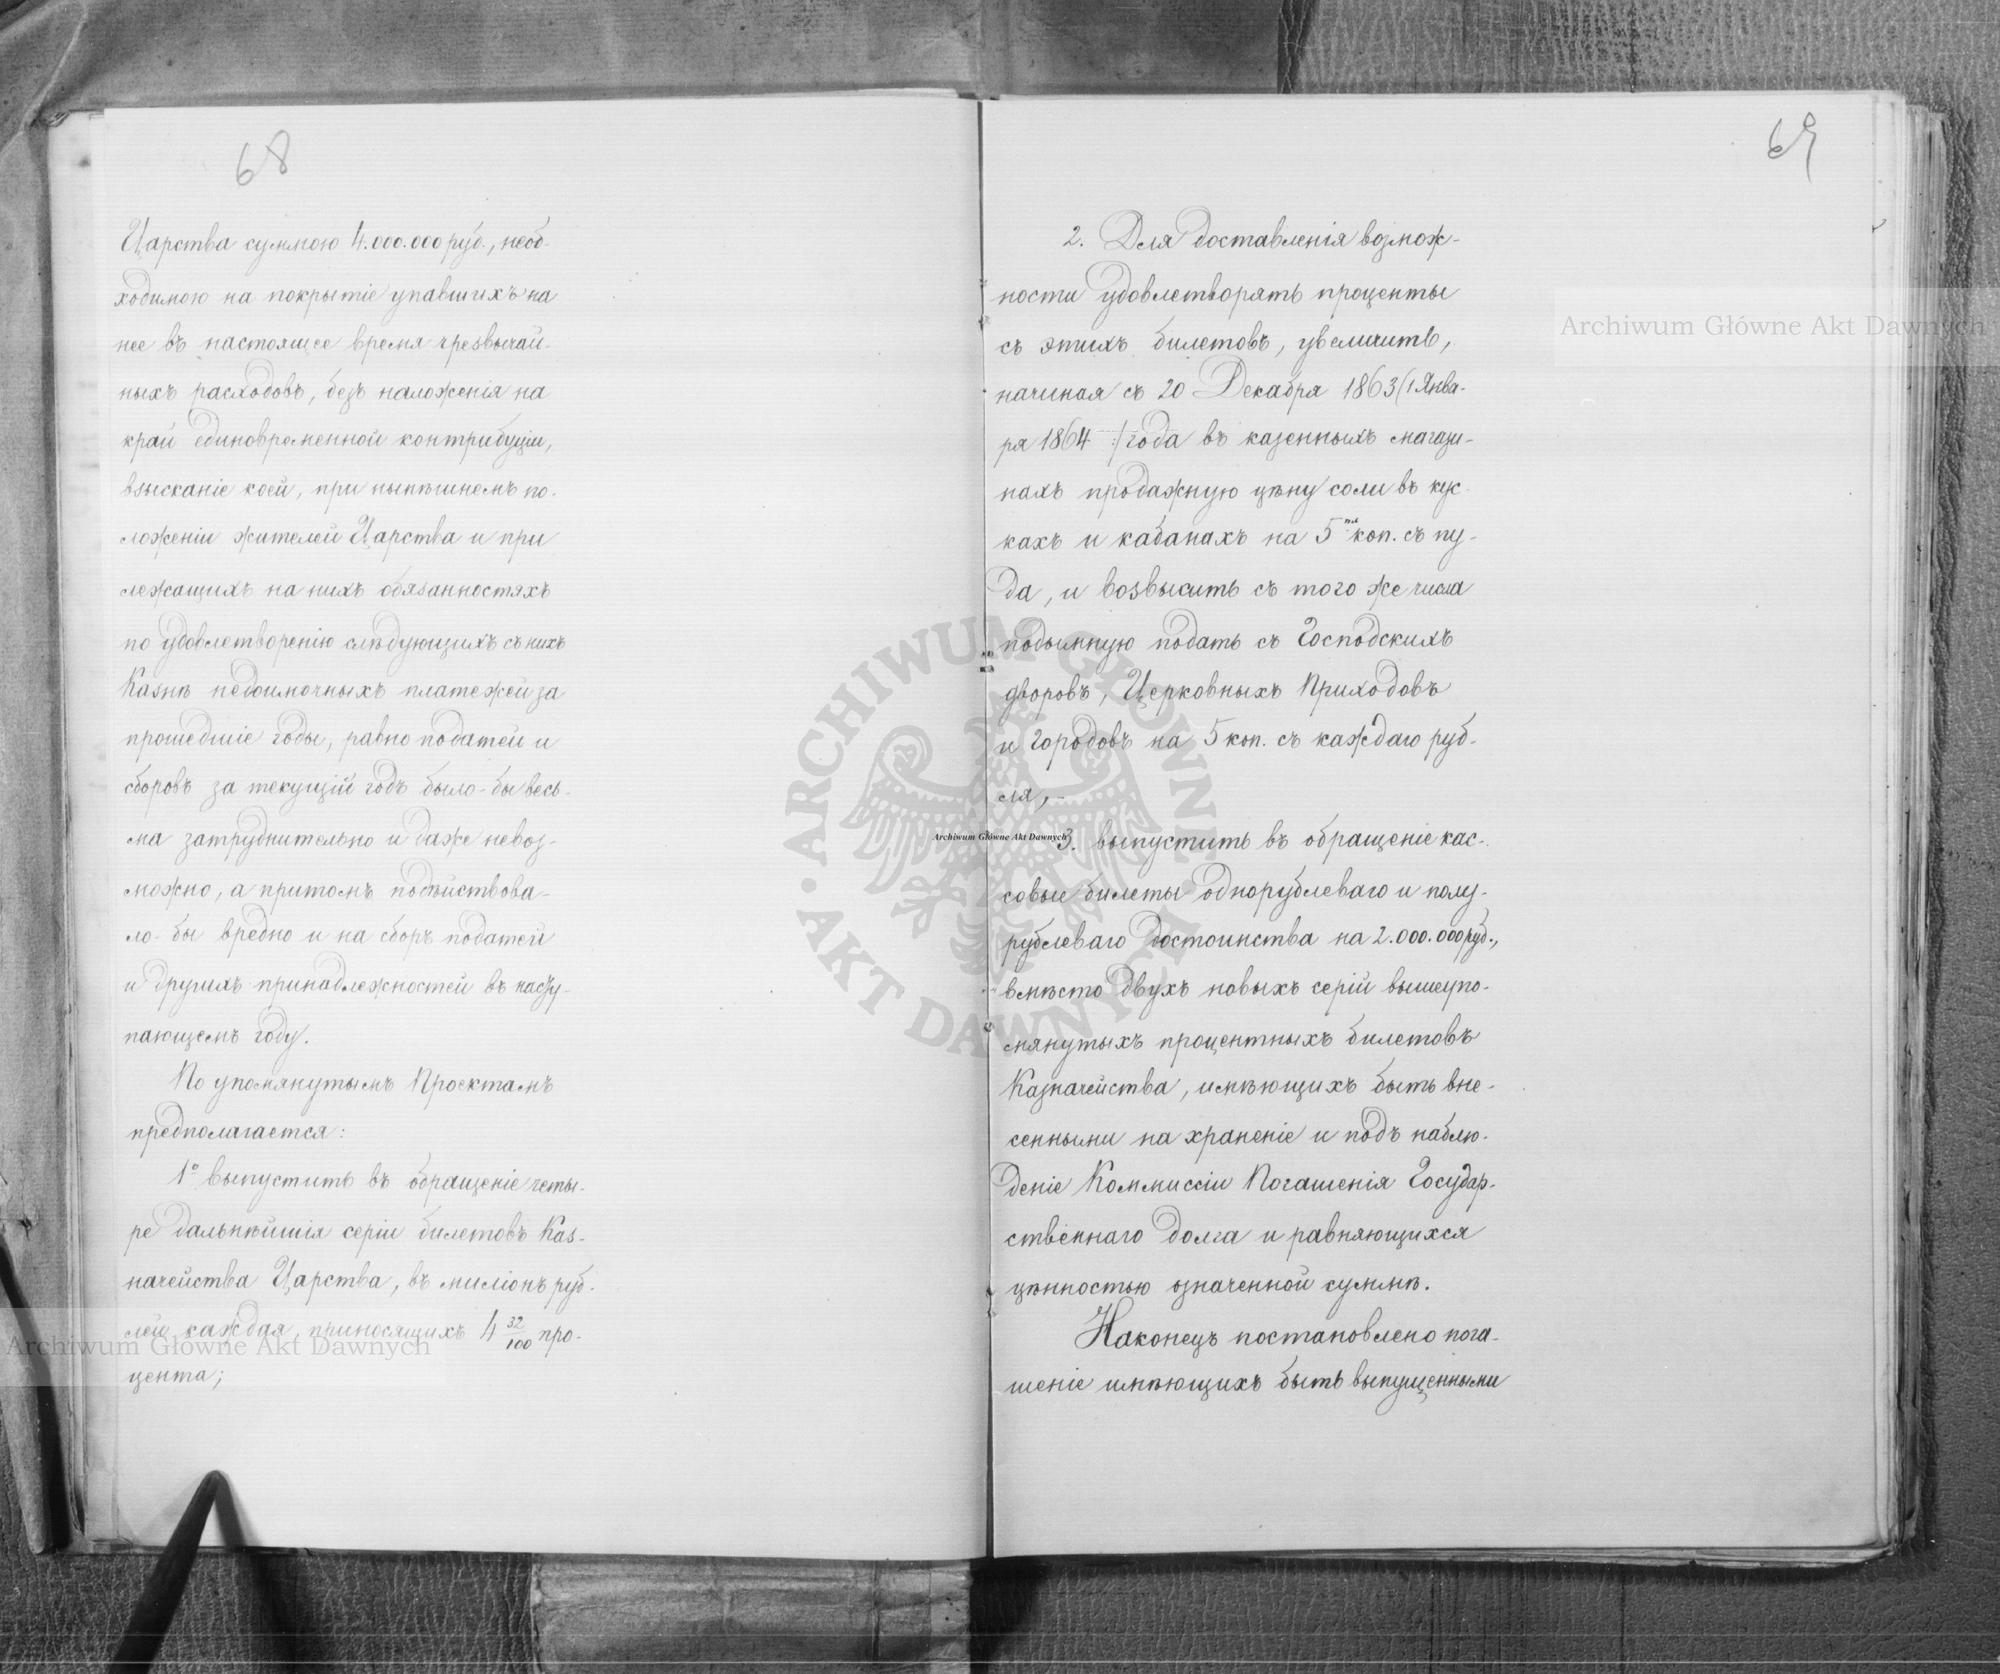 68
Царства суммою 4.000.000 руб., необ-
ходимою на покрытіе упавшихъ на
нее въ настоящее время чрезвычай-
ныхъ расходовъ, безъ наложенія на
край единовременной контрибуціи,
взысканіе коей, при нынѣшнемъ по-
ложеніи жителей Царства и при
лежащихъ на нихъ обязанностяхъ
по удовлетворенію слѣдующихъ съ нихъ
Казнѣ недоимочныхъ платежей за
прошедшіе годы, равно податей и
сборовъ за текущій годъ было-бы весь-
ма затруднительно и даже невоз-
можно, а притомъ подѣйствова-
ло-бы вредно и на сборъ податей
и другихъ принадлежностей въ насту-
пающемъ году.
По упомянутымъ Проектамъ
предполагается:
1º выпустить въ обращеніе четы-
ре дальнѣйшія серіи билетовъ Каз-
начейства Царства, въ миліонъ руб-
лей каждая, приносящихъ 4 32/100 про-
цента;
69
2. Для доставленія возмож-
ности удовлетворять проценты
съ этихъ билетовъ, увеличить,
начиная съ 20 Декабря 1863 (1 Янва-
ря 1864 :/ года въ казенныхъ магази-
нахъ продажную цѣну соли въ кус-
кахъ и кабанахъ на 5 коп. съ пу-
да, и возвысить съ того же числа
подымную подать съ Господскихъ
дворовъ, Церковныхъ Приходовъ
и Городовъ на 5 коп. съ каждаго руб-
ля,-
3. выпустить въ обращеніе кас-
совые билеты однорублеваго и полу-
рублеваго достоинства на 2.000.000 руб.,
вмѣсто двухъ новыхъ серій вышеупо-
мянутыхъ процентныхъ билетовъ
Казначейства, имѣющихъ быть вне-
сенными на храненіе и подъ наблю-
деніе Коммиссіи Погашенія Государ-
ственнаго долга и равняющихся
цѣнностью означенной суммѣ.
Наконецъ постановлено пога-
шеніе имѣющихъ быть выпущенными
Archiwum Główne Akt Dawnych
Archiwum Główne Akt Dawnych
Archiwum Główne Akt Dawnych
ARCHIWUM GŁÓWNE AKT DAWNYCH